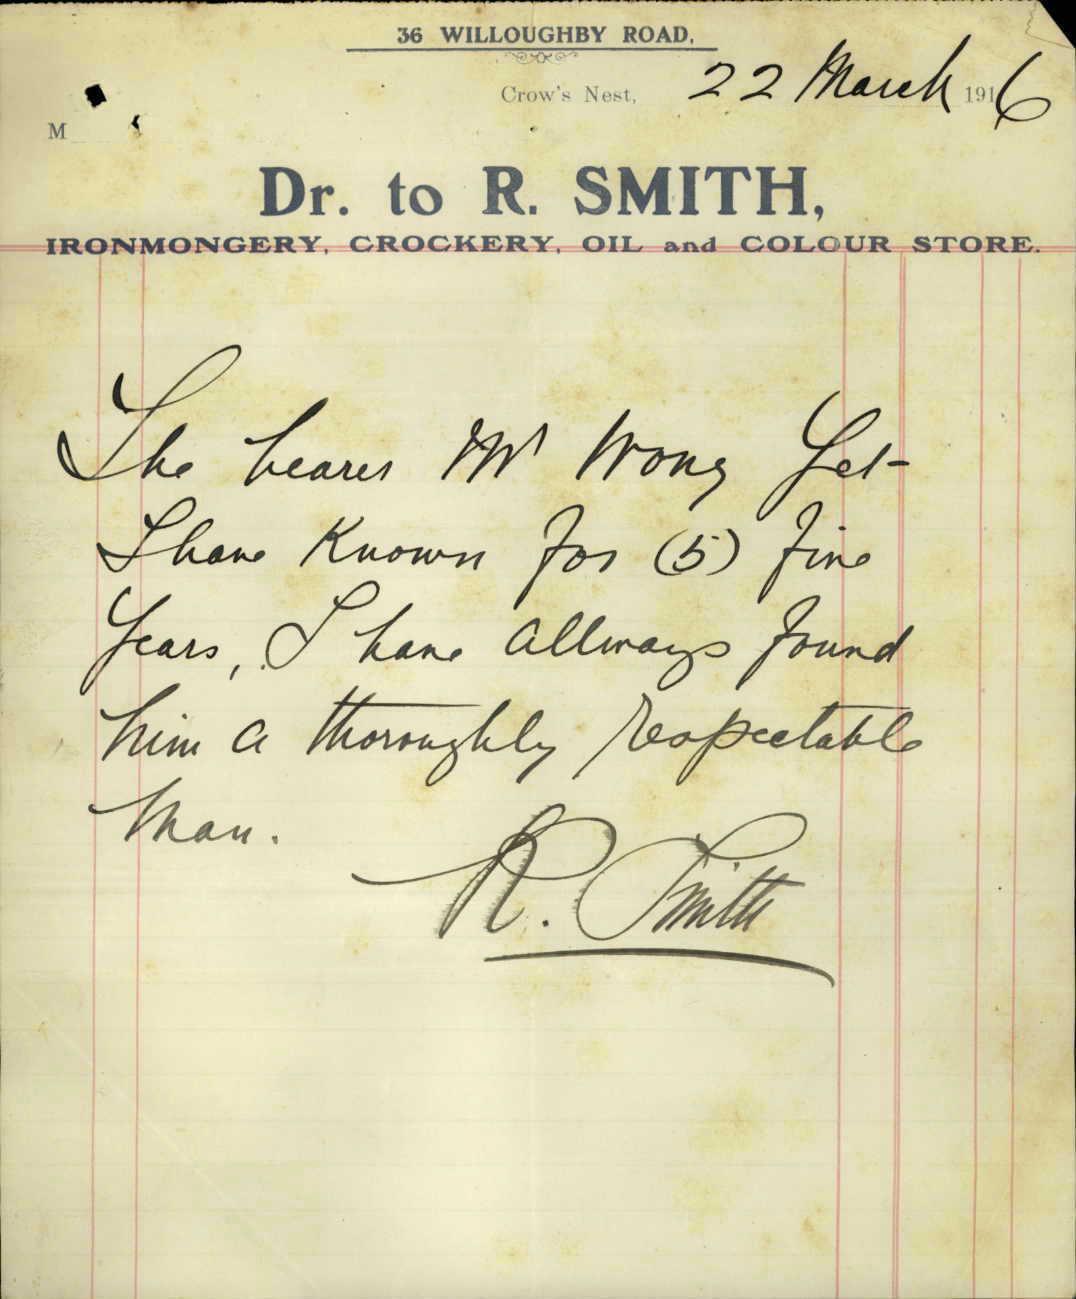 36 WILLOUGHBY ROAD,
Crow's Nest, 22 March 1916
M
Dr. to R. SMITH,
IRONMONGERY, CROCKERY, OIL and COLOUR STORE.
The bearer Mr Wong Yet
I have Known for (5) five
Years, I have allways found
him a thoroughly respectable
Man.
R. Smith